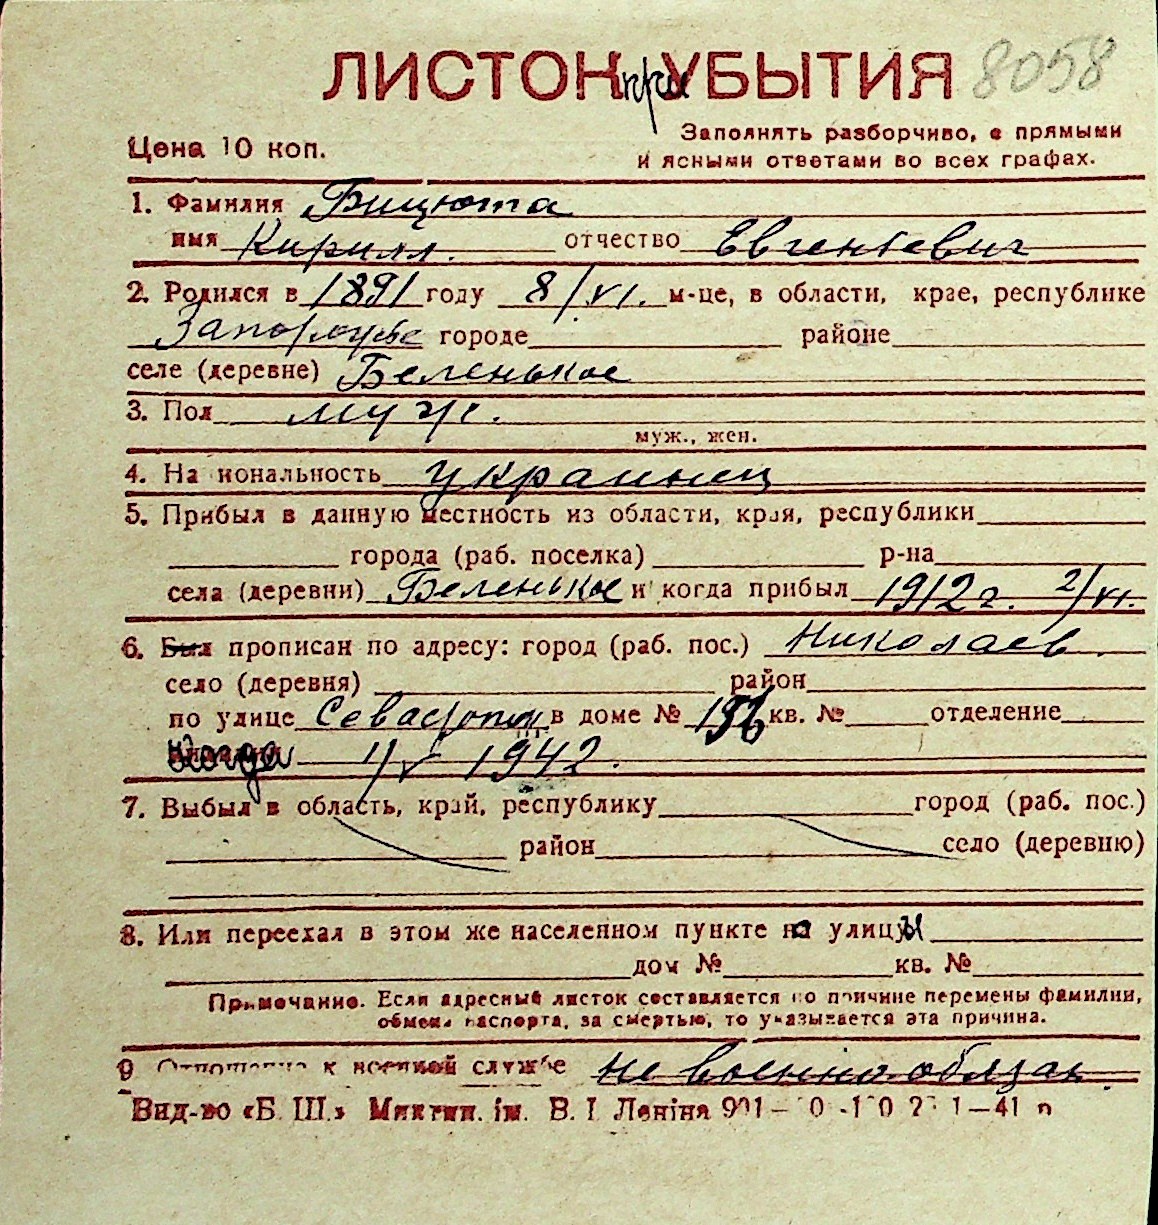 ЛИСТОК при УБЫТИЯ 8058
Заполнять разборчиво, с прямыми
Цена 10 коп.
и ясными ответами во всех графах.
1. Фамилия Бицюта
имя Кирилл. отчество Евгеньевич
2. Родился в 1891 году 8/VI. м-це, в области, крае, республике
городе районе
селе (деревне) Беленькое
3. Пол муж.
муж., жен.
4. На иональность украинец
5. Прибыл в данную местность из области, края, республики
города (раб. поселка) р-на
села (деревни) Беленькое и когда прибыл 1912 г. 2/VI.
6. Был прописан по адресу: город (раб. пос.) Николаев.
село (деревня) район
по улице Севастопол в доме № 156 кв. № отделение
Когда 1/V 1942.
7. Выбыл в область, край, республику город (раб. пос.)
район село (деревню)
8. Или переехал в этом же населенном пункте на улицы
дом № кв. №
Примечание. Если адресный листок составляется по причине перемены фамилии,
обмена паспорта, за смертью, то указывается эта причина.
9 Отношение к военной службе не военнообязан.
Вид-во «Б. Ш.» Миктип. ім. В. І. Леніна